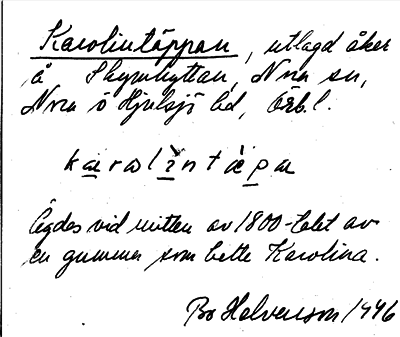 Karolintäppan, utlagd åker
å Skrumhyttan, Nora sn,
Nora o Hjulsjö bd, Örb. l.
Ägdes vid mitten av 1800-talet av
en gumma som hette Karolina.
Bo Halvarsson 1996